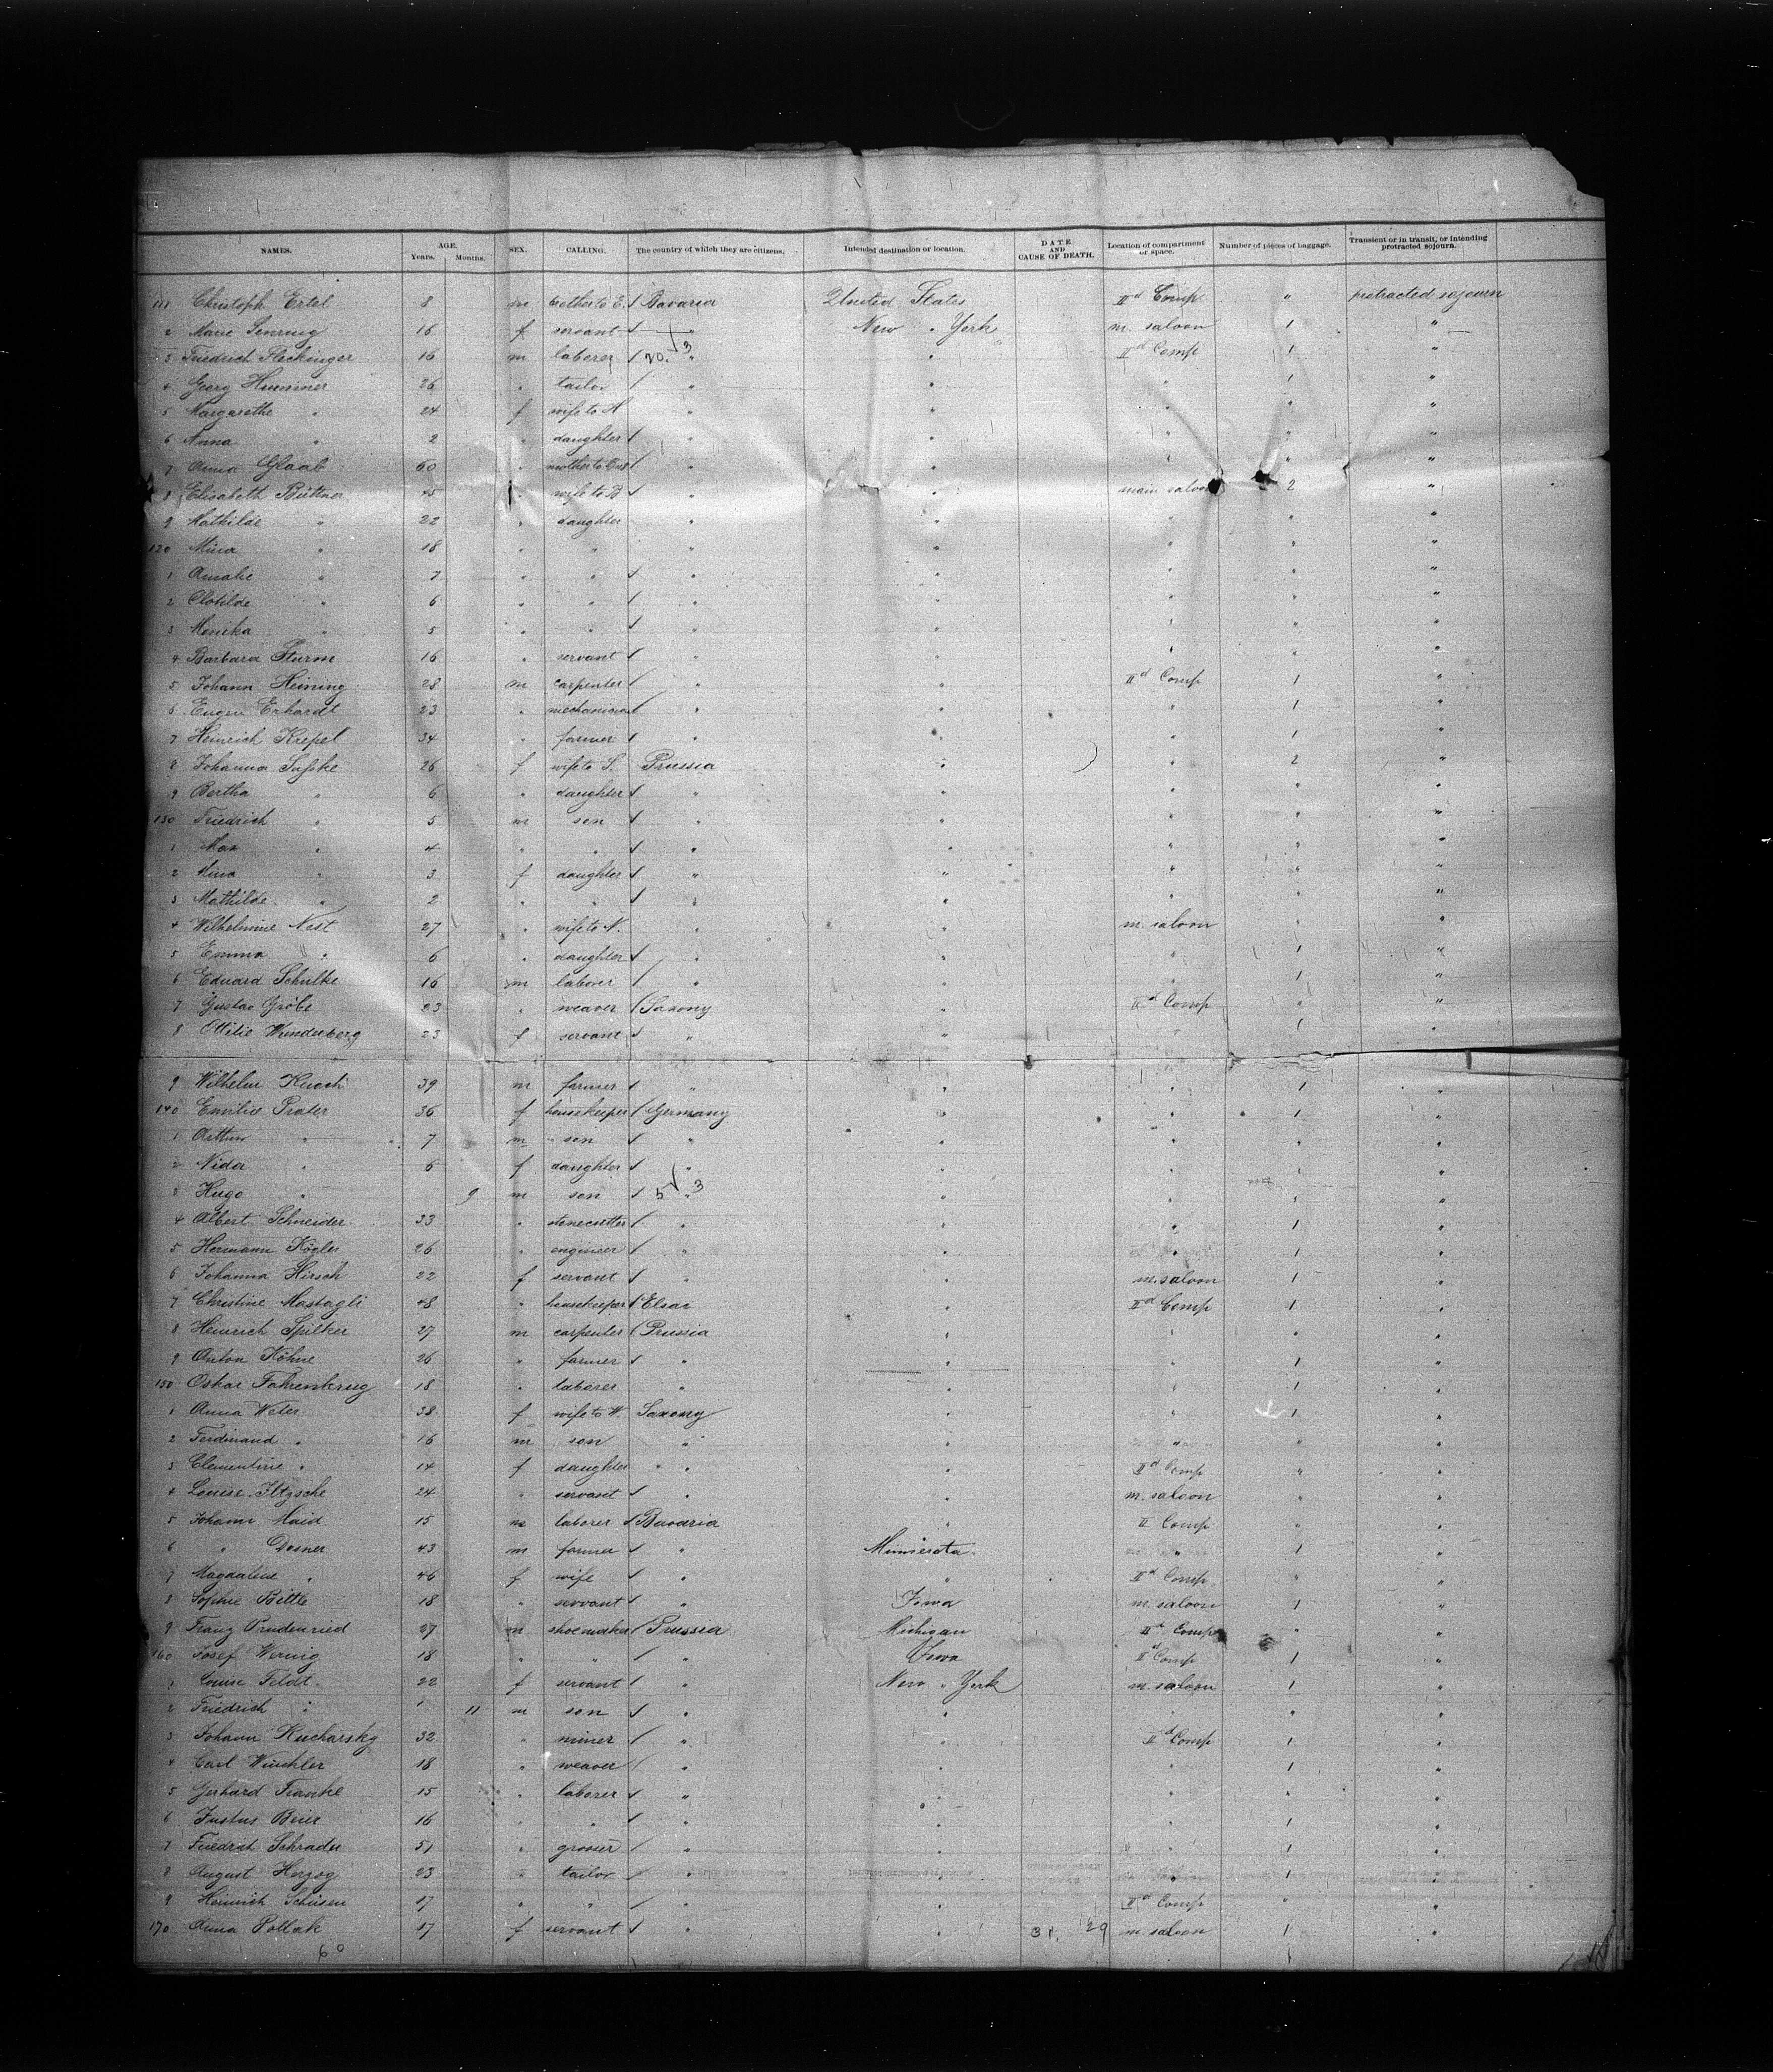 NAMES. AGE. Years. Months. SEX. CALLING. The country of which they are citizens. Intended destination or location. DATE AND CAUSE OF DEATH. Location of compartment or space. Number of pieces of baggage. Transient or in transit, or intending protracted sojourn.
111 Christoph Ertel 8 m brother to E. Bavaria United States IId Comp " protracted sojourn
2 Marie Senring 16 f servant " New " York m. saloon 1 "
3 Friedrich Fleckinger 16 m laborer 20. 3 " " IId Comp 1 "
4 Georg Hummer 26 " tailor " " " 1 "
5 Margarethe " 24 f wife to H " " " " "
6 Anna " 2 " daughter " " " " "
7 Anna Glaab 60 " mother to " " " " "
8 Elisabeth Büttner 45 " wife to B " " main saloon 2 "
9 Mathilde " 22 " daughter " " " " "
120 Mina " 18 " " " " " " "
1 Amalie " 7 " " " " " " "
2 Clotilde " 6 " " " " " " "
3 Monika " 5 " " " " " " "
4 Barbara Sturm 16 " servant " " " " "
5 Johann Heining 28 m carpenter " " IId Comp 1 "
6 Eugen Erhardt 23 " mechanician " " " 1 "
7 Heinrich Krepel 34 " farmer " " " 1 "
8 Johanna Suffke 26 f wife to S. Prussia " " 2 "
9 Bertha " 6 " daughter " " " " "
130 Friedrich " 5 m son " " " " "
1 Max " 4 " " " " " " "
2 Mina " 3 f daughter " " " " "
3 Mathilde " 2 " " " " " " "
4 Wilhelmine Nest 27 " wife to N. " " m. saloon " "
5 Emma " 6 " daughter " " " 1 "
6 Eduard Schulke 16 m laborer " " " 1 "
7 Gustav Gröbe 23 " weaver Saxony " IId Comp " "
8 Ottilie Wunderberg 23 f servant " " " 1 "
9 Wilhelm Kusch 39 m farmer " " " 1 "
140 Emilie Prater 36 f housekeeper Germany " " 1 "
1 Arthur " 7 m son " " " " "
2 Nida " 6 f daughter " " " " "
3 Hugo " 9 m son 5 3 " " " " "
4 Albert Schneider 33 " stonecutter " " " 1 "
5 Hermann Kögler 26 " engineer " " " 1 "
6 Johanna Hirsch 22 f servant " " m. saloon 1 "
7 Christine Mastagli 48 " housekeeper Elsas " IId Comp 1 "
8 Heinrich Spilker 27 m carpenter Prussia " " " "
9 Anton Köhne 26 " farmer " " " 1 "
150 Oskar Fahrenkrug 18 " laborer " " " 1 "
1 Anna Weter 38 f wife to W. Saxony " " 1 "
2 Ferdinand " 16 m son " " " " "
3 Clementine " 14 f daughter " " IId Comp " "
4 Louise Iltzsche 24 " servant " " m. saloon " "
5 Johann Haid 15 m laborer Bavaria " II Comp " "
6 " Desner 43 m farmer " Minnesota " 1 "
7 Magdalene " 46 f wife " " IId Comp " "
8 Sophie Bittle 18 " servant " Iowa m. saloon 1 "
9 Franz Prudenried 27 m shoemaker Prussia Michigan IId Comp " "
160 Josef Wernig 18 " " " Iowa IId Comp 1 "
1 Louise Feldt 22 f servant " New " York m. saloon 1 "
2 Friedrich " 11 m son " " " " "
3 Johann Kucharsky 32 " miner " " IId Comp 1 "
4 Carl Winkler 18 " weaver " " " 1 "
5 Gerhard Franke 15 " laborer " " " " "
6 Justus Beier 16 " " " " " 1 "
7 Friedrich Schrader 51 " grocer " " " 1 "
8 August Herzog 23 " tailor " " " 1 "
9 Heinrich Schüsen 17 " " " " IId Comp " "
170 Anna Pollak 17 f servant " " 31. 29 m. saloon 1 "
60